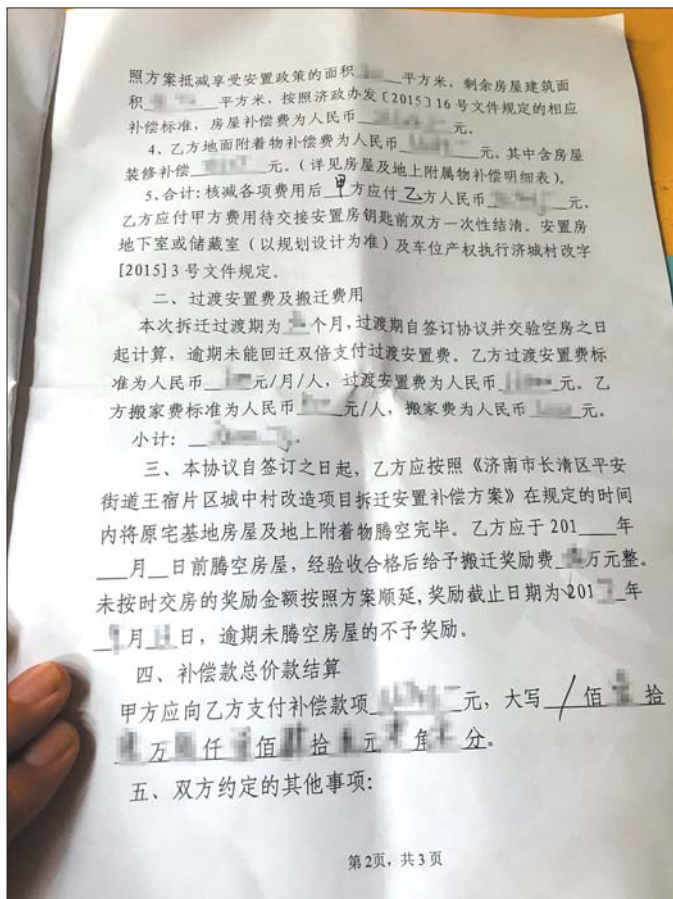 照方案抵减享受安置政策的面积 平方米，剩余房屋建筑面
积 平方米，按照济政办发〔2015〕16号文件规定的相应
补偿标准，房屋补偿费为人民币 元。
4、乙方地面附着物补偿费为人民币 元。其中含房屋
装修补偿 元。（详见房屋及地上附属物补偿明细表）。
5、合计：核减各项费用后 甲方应付 乙方人民币 元。
乙方应付甲方费用待交接安置房钥匙前双方一次性结清。安置房
地下室或储藏室（以规划设计为准）及车位产权执行济城村改字
[2015]3号文件规定。
二、过渡安置费及搬迁费用
本次拆迁过渡期为 个月，过渡期自签订协议并交验空房之日
起计算，逾期未能回迁双倍支付过渡安置费。乙方过渡安置费标
准为人民币 元/月/人，过渡安置费为人民币 元。乙
方搬家费标准为人民币 元/人，搬家费为人民币 元。
小计： 。
三、本协议自签订之日起，乙方应按照《济南市长清区平安
街道王宿片区城中村改造项目拆迁安置补偿方案》在规定的时间
内将原宅基地房屋及地上附着物腾空完毕。乙方应于 201____年
___月__日前腾空房屋，经验收合格后给予搬迁奖励费 万元整。
未按时交房的奖励金额按照方案顺延，奖励截止日期为 201 _年
月 日，逾期未腾空房屋的不予奖励。
四、补偿款总价款结算
甲方应向乙方支付补偿款项 元，大写 / 佰 拾
万 仟 佰 拾 元 角 分。
五、双方约定的其他事项：
第2页，共3页